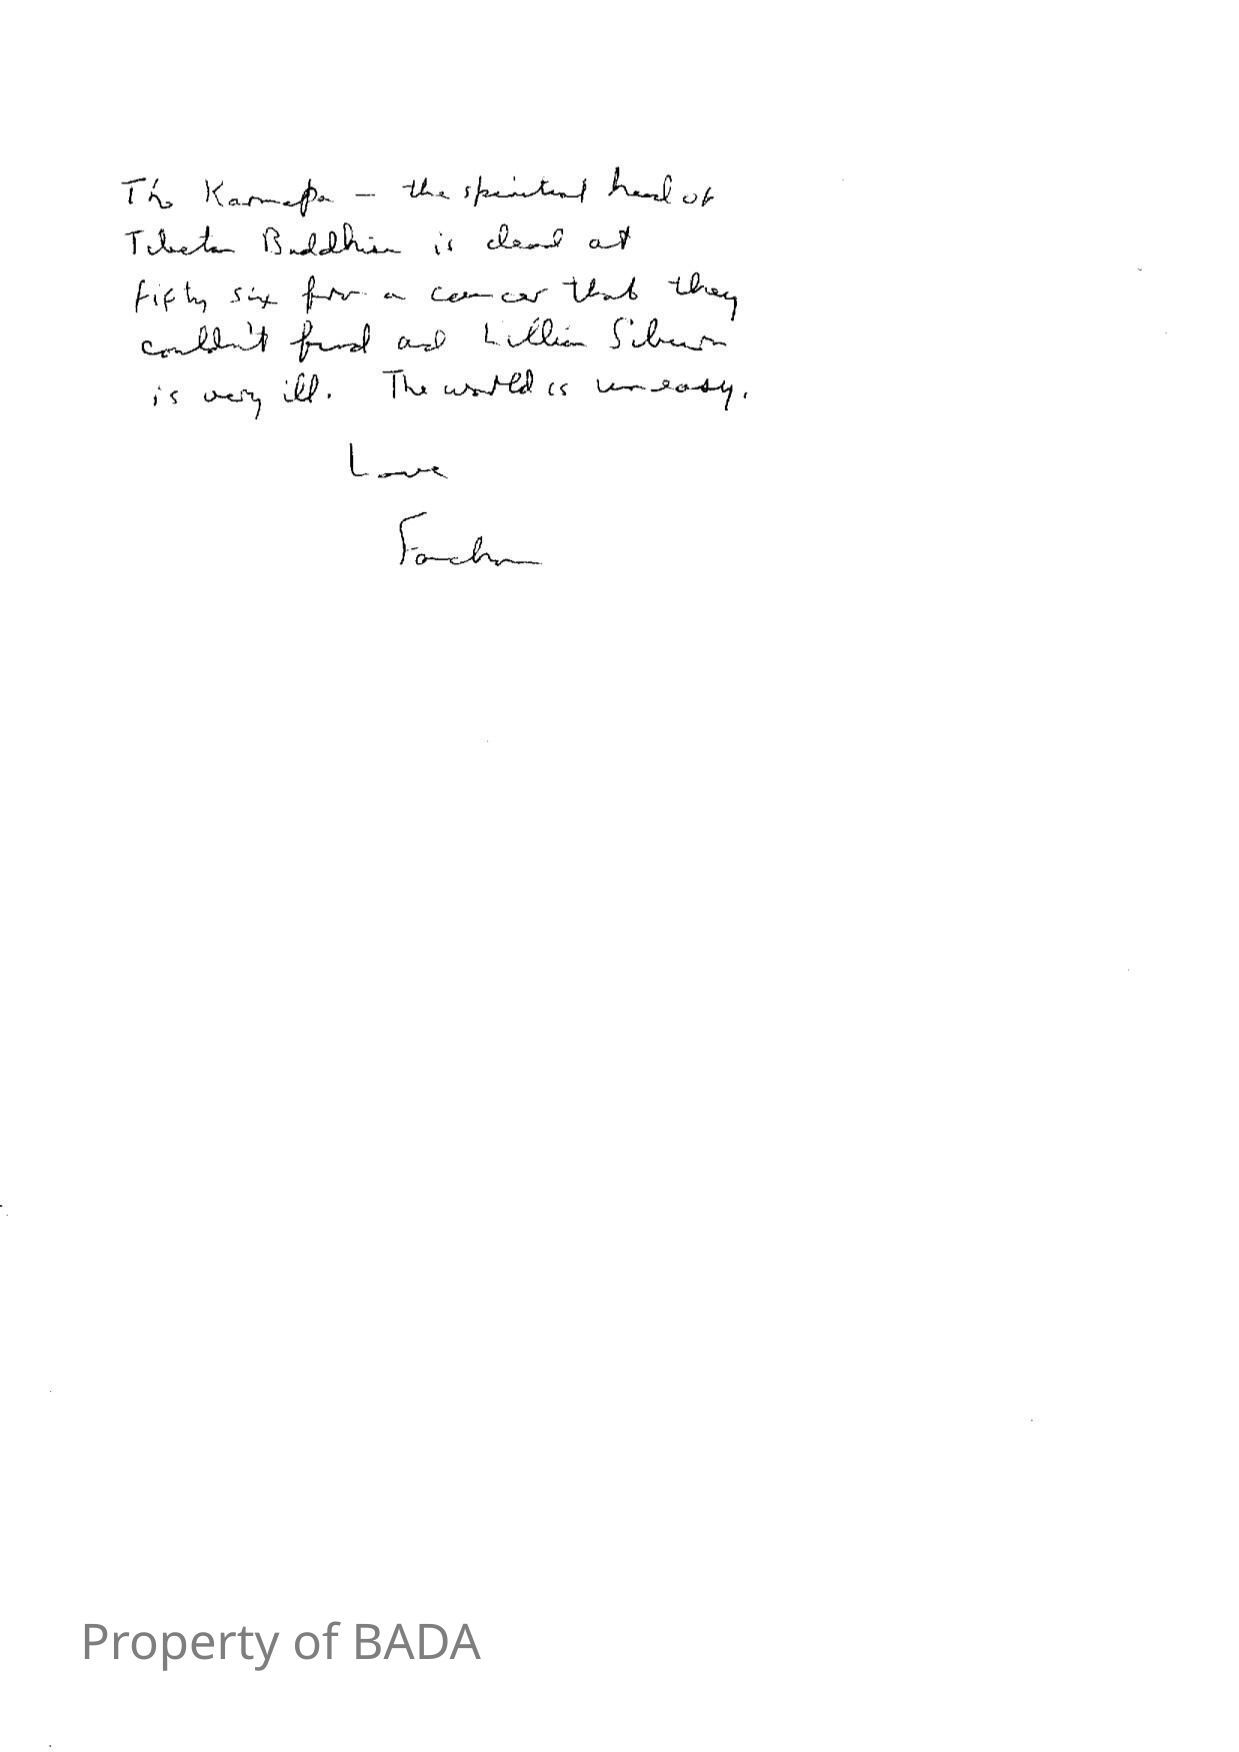 The Karmapa – the spiritual head of
Tibetan Buddhism is dead at
fifty six from a cancer that they
couldn't find and Lillian Silburn
is very ill. The world is uneasy.
Love
Property of BADA